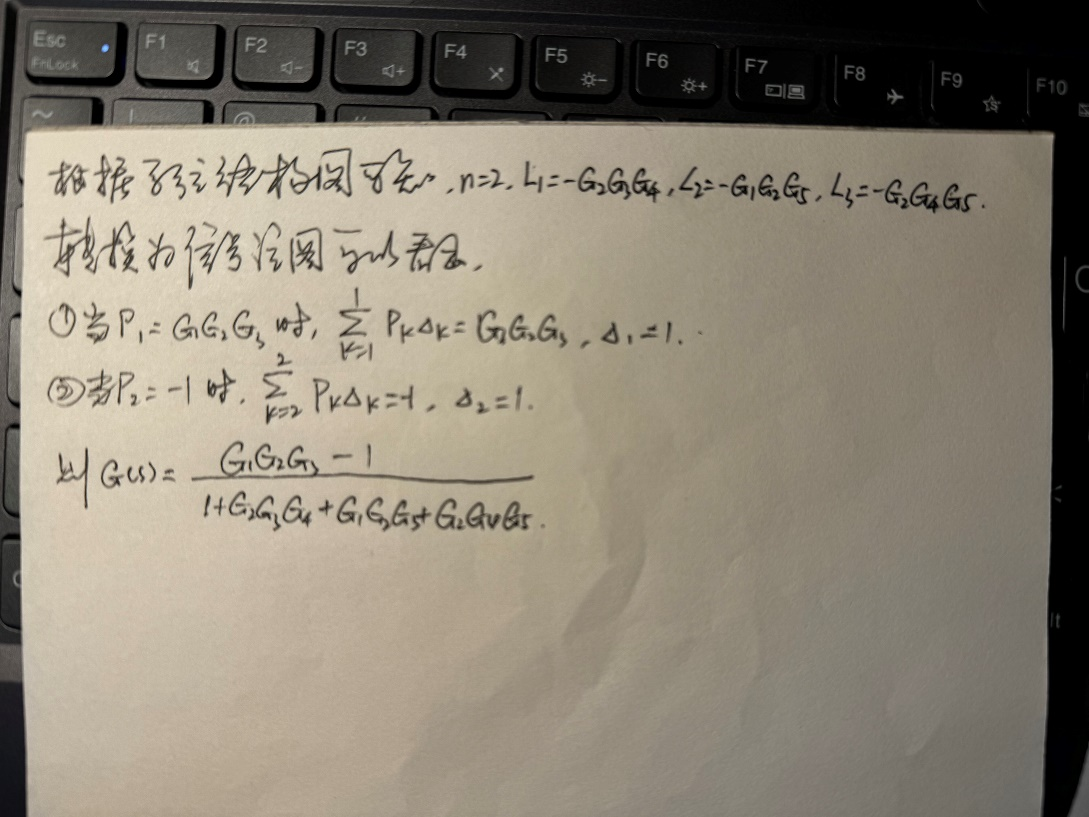 Esc F1 F2 F3 F4 F5 F6 F7 F8 F9 F10
FnLock
根据系统结构图可知,n=2,L₁=-G₂G₃G₄,L₂=-G₁G₂G₅,L₃=-G₂G₄G₅.
转换为信号流图可以看出,
①当P₁=G₁G₂G₃时,∑_{K=1}^{1} P_KΔ_K=G₁G₂G₃,Δ₁=1.
②当P₂=-1时,∑_{K=2}^{2} P_KΔ_K=-1,Δ₂=1.
则G(s)=(G₁G₂G₃-1)/(1+G₂G₃G₄+G₁G₂G₅+G₂G₄G₅).